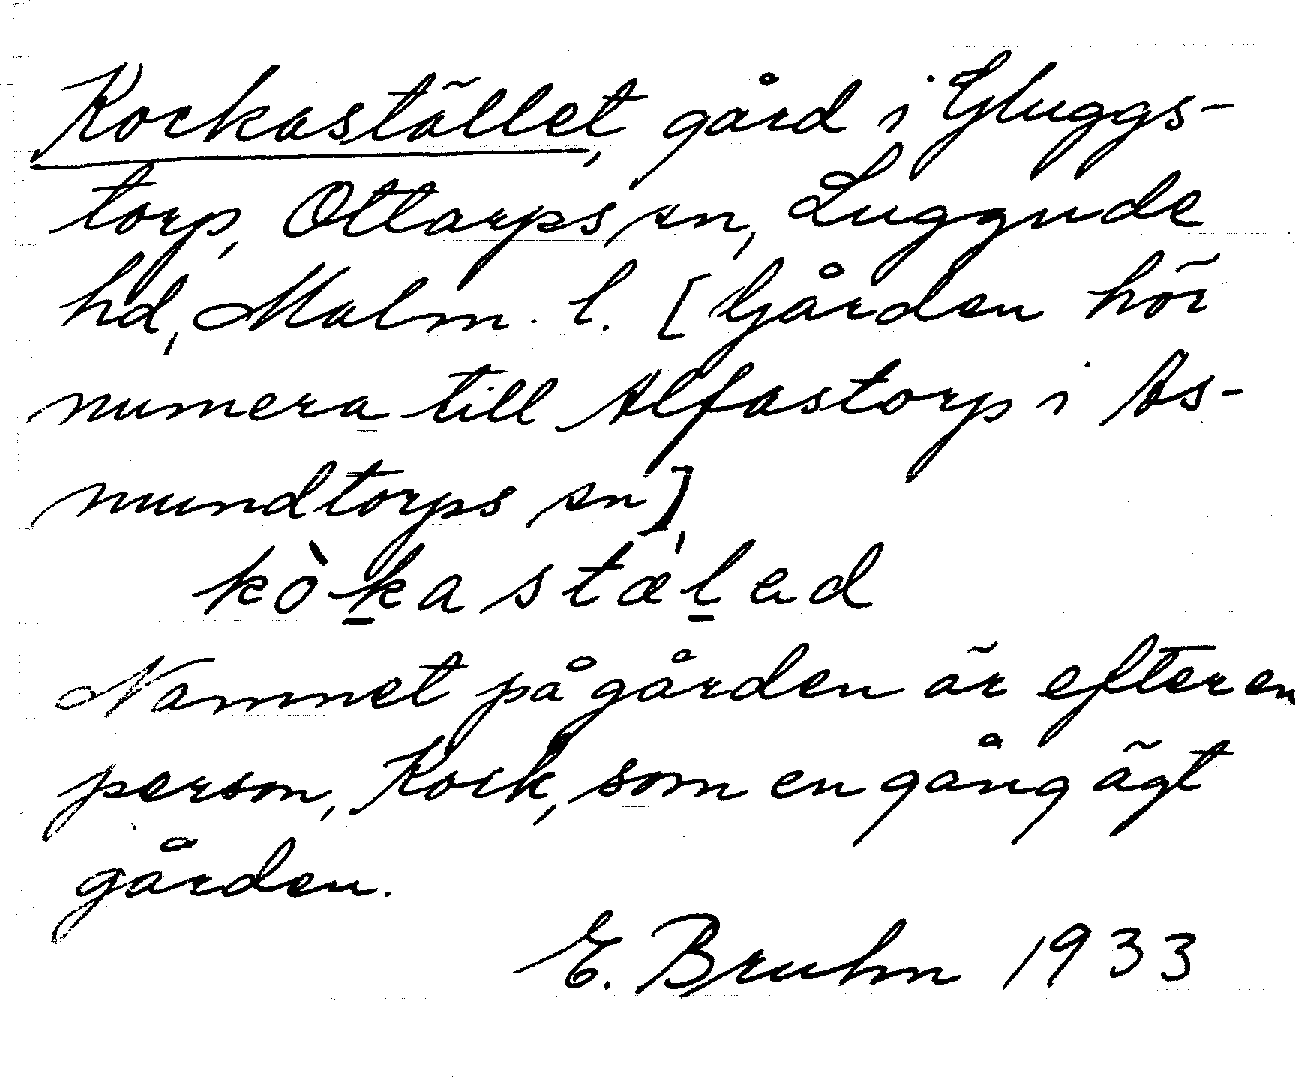 Kockastället, gård i Gluggs-
torp, Ottarps sn, Luggude
hd, Malm. l. [Gården hör
numera till Alfastorp i As-
mundtorps sn]
kòkastæ̍led
Namnet på gården är efter en
person, Kock, som en gång ägt
gården.
E. Bruhn 1933